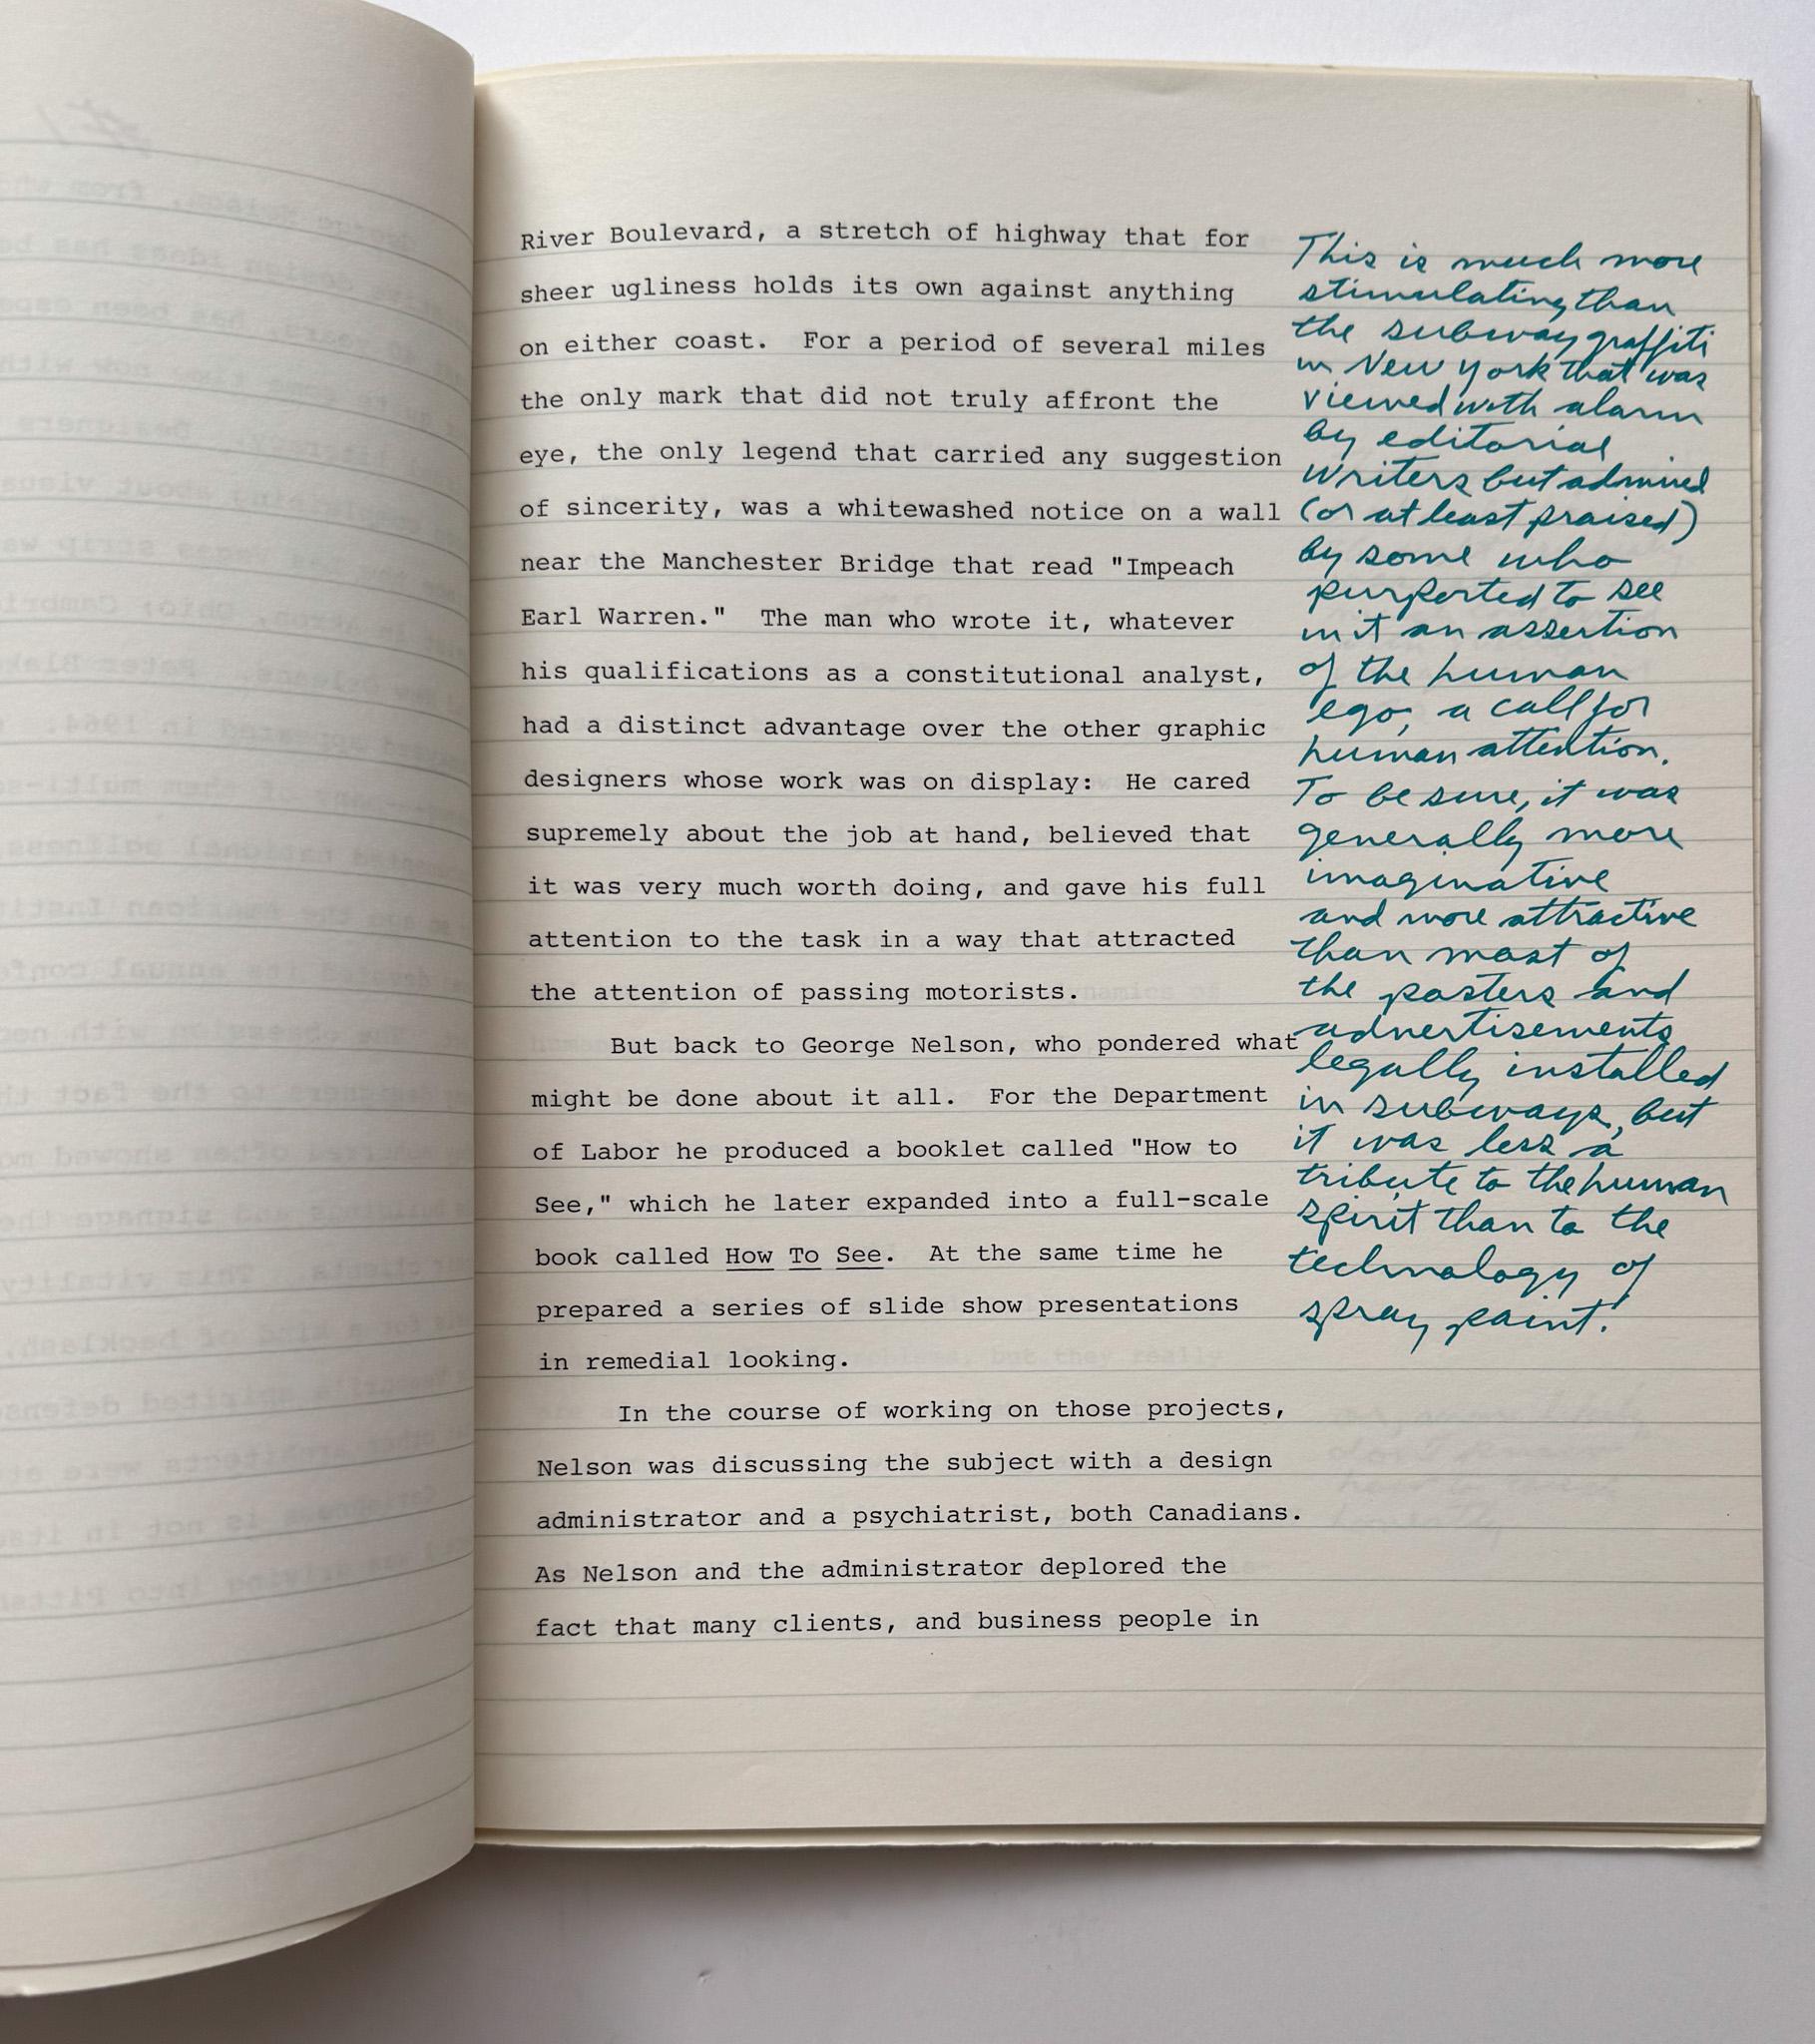 River Boulevard, a stretch of highway that for
sheer ugliness holds its own against anything
on either coast.  For a period of several miles
the only mark that did not truly affront the
eye, the only legend that carried any suggestion
of sincerity, was a whitewashed notice on a wall
near the Manchester Bridge that read "Impeach
Earl Warren."  The man who wrote it, whatever
his qualifications as a constitutional analyst,
had a distinct advantage over the other graphic
designers whose work was on display:  He cared
supremely about the job at hand, believed that
it was very much worth doing, and gave his full
attention to the task in a way that attracted
the attention of passing motorists.
But back to George Nelson, who pondered what
might be done about it all.  For the Department
of Labor he produced a booklet called "How to
See," which he later expanded into a full-scale
book called How To See.  At the same time he
prepared a series of slide show presentations
in remedial looking.
In the course of working on those projects,
Nelson was discussing the subject with a design
administrator and a psychiatrist, both Canadians.
As Nelson and the administrator deplored the
fact that many clients, and business people in
This is much more
stimulating than
the subway graffiti
in New York that was
viewed with alarm
by editorial
writers but admired
(or at least praised)
by some who
purported to see
in it an assertion
of the human
ego, a call for
human attention.
To be sure, it was
generally more
imaginative
and more attractive
than most of
the posters and
advertisements
legally installed
in subways, but
it was less a
tribute to the human
spirit than to the
technology of
spray paint!